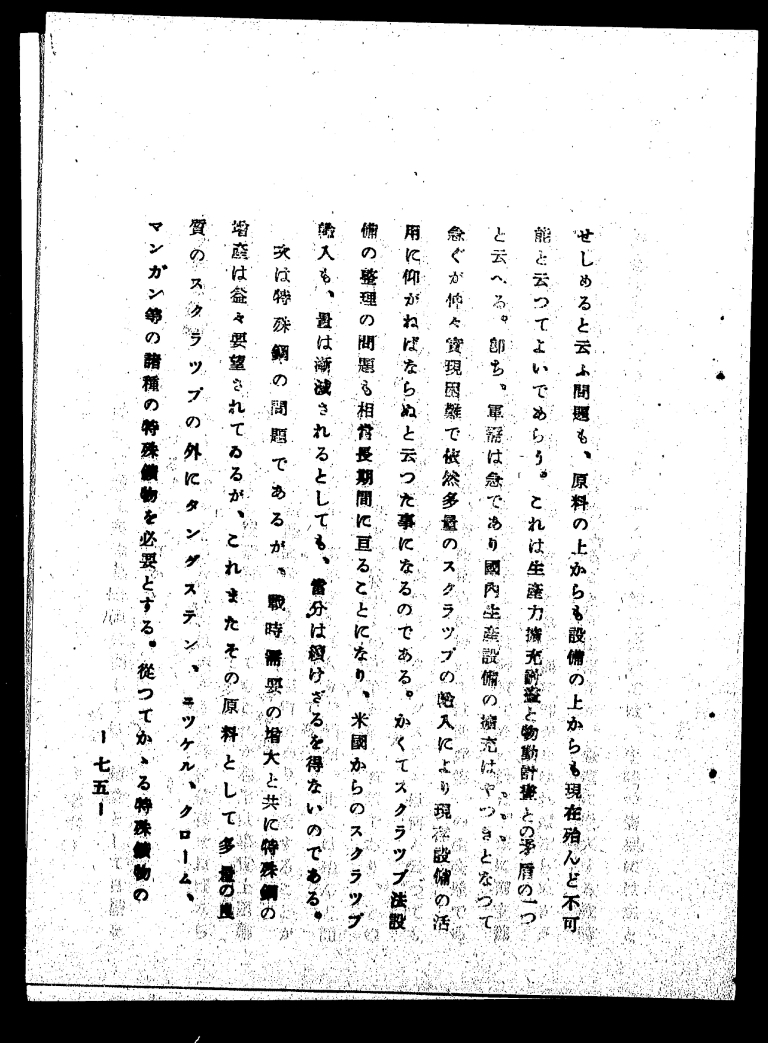 せしめると云ふ問題も、原料の上からも設備の上からも現在殆んど不可
能と云つてよいであらう。これは生産力擴充計畫と物動計畫との矛盾の一つ
と云へる。即ち。軍需は急であり國内生産設備の擴充はやつきとなつて
急ぐが仲々實現困難で依然多量のスクラツプの輸入により現在設備の活
用に仰がねばならぬと云つた事になるのである。かくてスクラツプ法設
備の整理の問題も相當長期間に亘ることになり、米國からのスクラツプ
輸入も、量は漸減されるとしても、當分は續けざるを得ないのである。
次は特殊鋼の問題であるが、戰時需要の増大と共に特殊鋼の
増産は益々要望されてゐるが、これまたその原料として多量の良
質のスクラツプの外にタングステン、ニツケル、クローム、
マンガン等の諸種の特殊鑛物を必要とする。從つてかゝる特殊鑛物の
ー七五ー